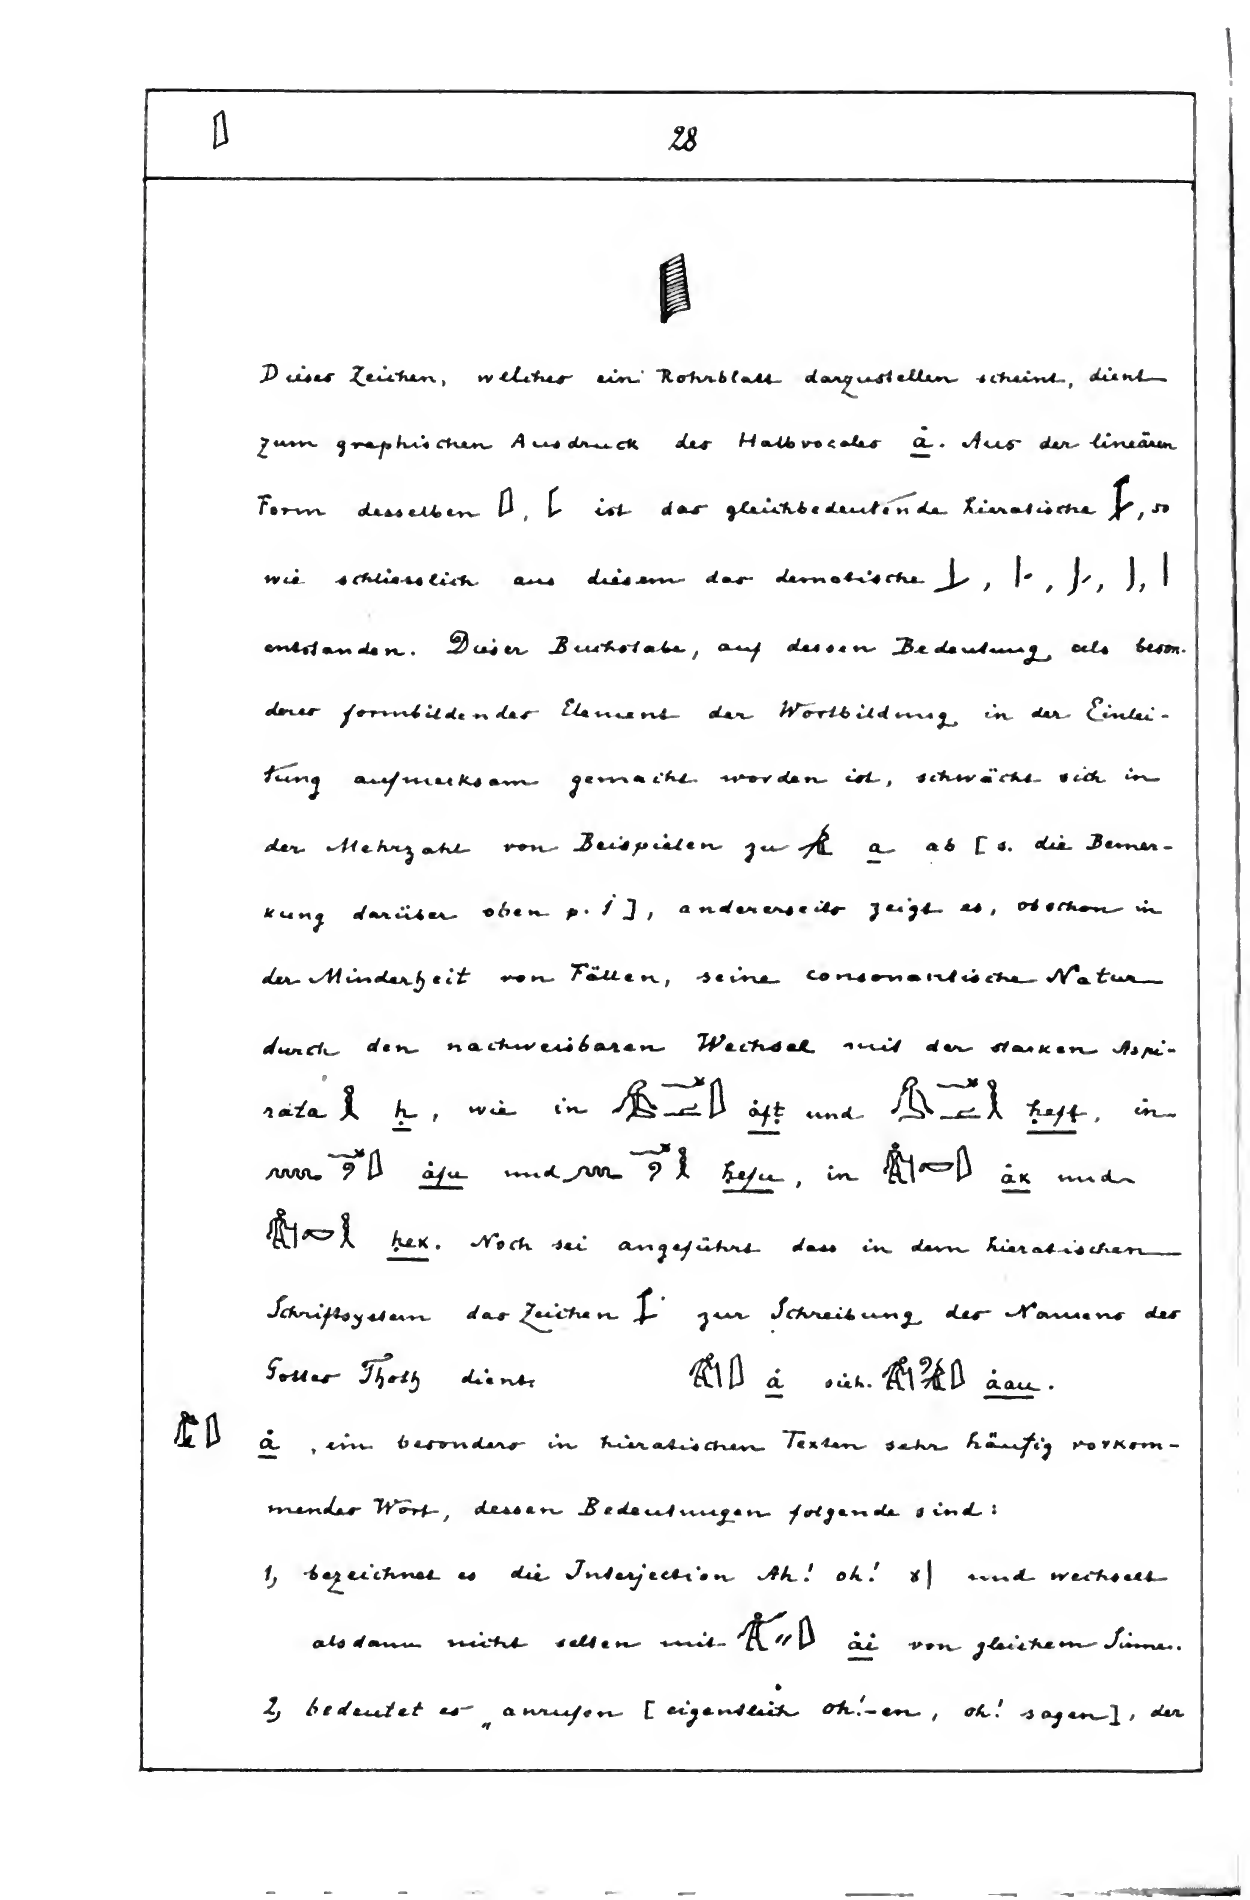 𓇋 28
𓇋
Dieses Zeichen, welches ein Rohrblatt darzustellen scheint, dient
zum graphischen Ausdruck des Halbvocales ȧ. Aus der lineären
Form desselben 𓇋, ist das gleichbedeutende hieratische , so
wie schliesslich aus diesem das demotische , , , ,
entstanden. Dieser Buchstabe, auf dessen Bedeutung als beson-
deres formbildendes Element der Wortbildung in der Einlei-
tung aufmerksam gemacht worden ist, schwächt sich in
der Mehrzahl von Beispielen zu 𓄿 a ab [s. die Bemer-
kung darüber oben p. 1], andererseits zeigt es, obschon in
der Minderheit von Fällen, seine consonantische Natur
durch den nachweisbaren Wechsel mit der starken Aspi-
rata 𓎛 ḥ, wie in ȧfṭ und ḥefṭ, in
ȧfu und ḥefu, in ȧk und
ḥek. Noch sei angeführt dass in dem hieratischen
Schriftsystem das Zeichen zur Schreibung des Namens des
Gottes Thoth dient. 𓇋𓀁 ȧ sieh. ȧau.
𓇋𓀁 ȧ, ein besonders in hieratischen Texten sehr häufig vorkom-
mendes Wort, dessen Bedeutungen folgende sind:
1, bezeichnet es die Interjection Ah! oh! und wechselt
alsdann nicht selten mit ȧi von gleichem Sinne.
2, bedeutet es „anrufen [eigentlich oh!-en, oh! sagen], der